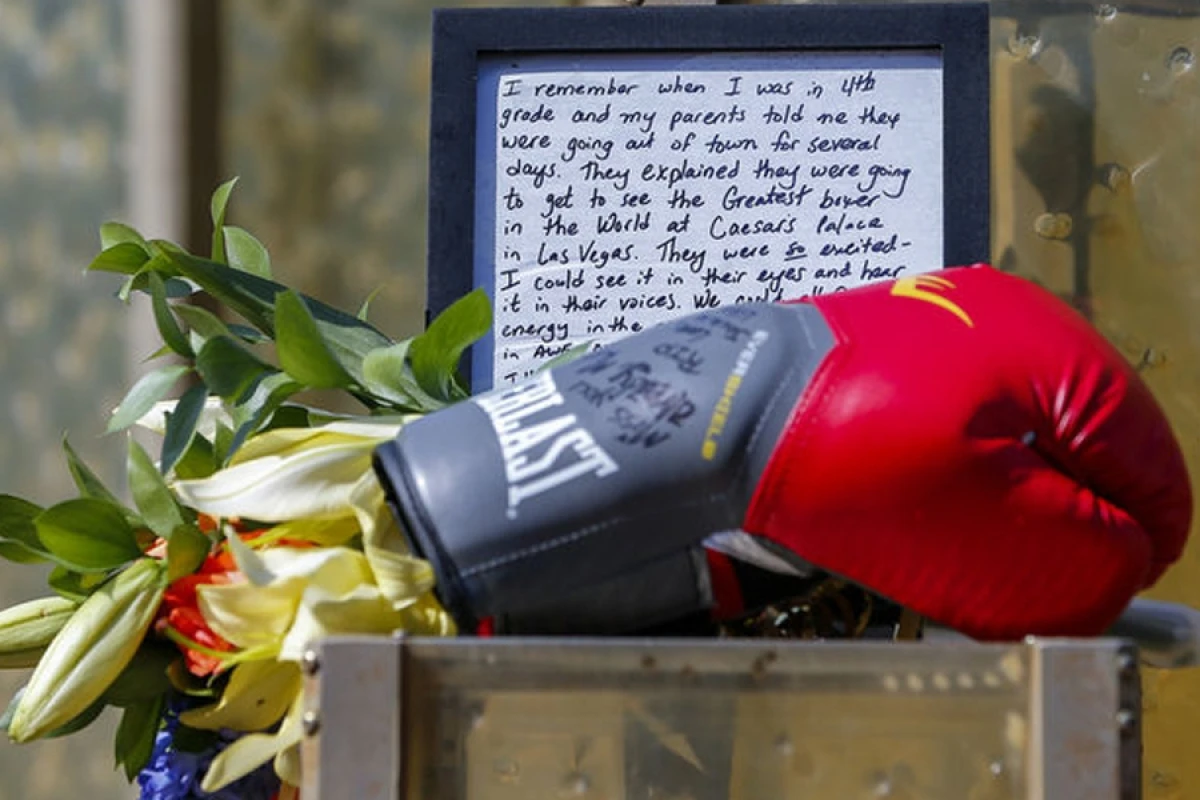 I remember when I was in 4th
grade and my parents told me they
were going out of town for several
days. They explained they were going
to get to see the Greatest boxer
in the World at Caesars Palace
in Las Vegas. They were so excited-
I could see it in their eyes and hear
it in their voices. We
energy in the
in AWE
EVERSHIELD
RLAST
Miss you